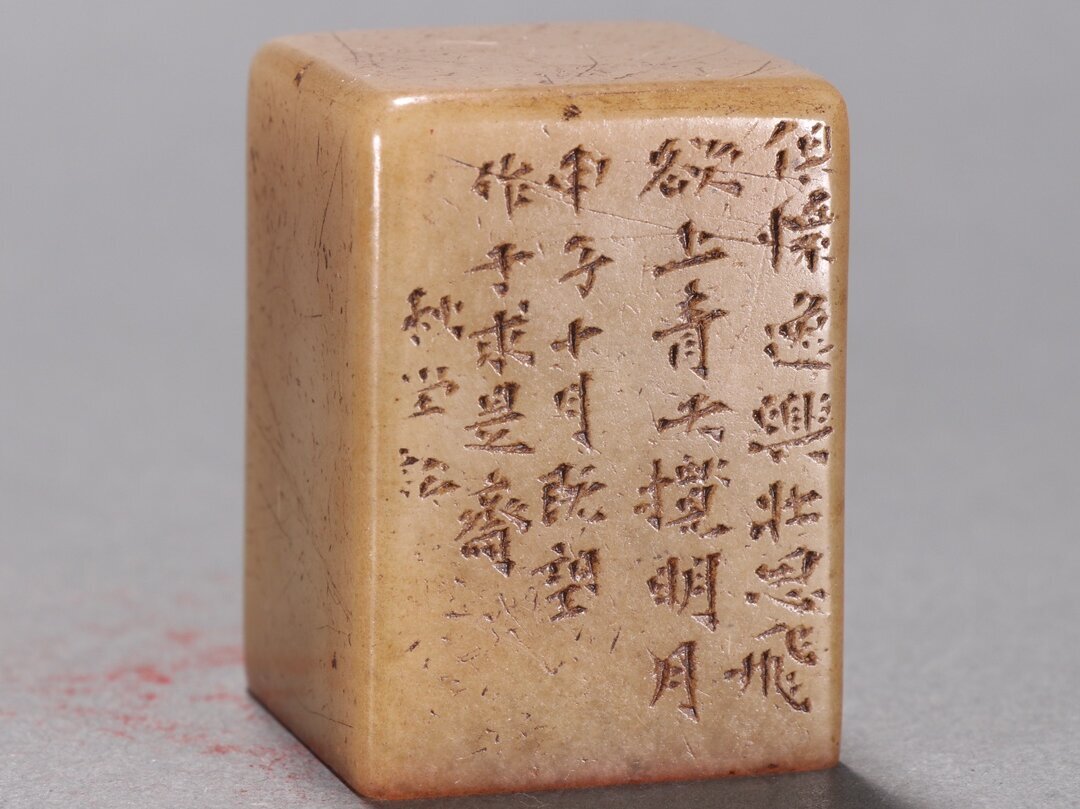 俱懷逸興壯思飛
欲上青天攬明月
甲子十月既望
作于求是齋
秋堂